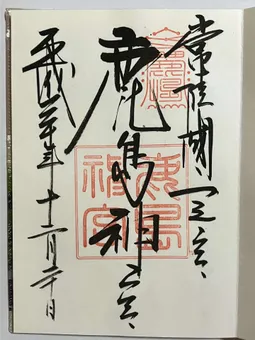 常陸國一之宮
鹿島神宮
平成年十二月二十日
鹿島
神宮